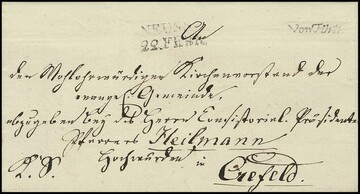 NEUSS
22. FEBR.
An
den Wohlehrwürdigen Kirchenvorstand der
evangel. Gemeinde,
abzugeben bey des Herrn Consistorial-Präsidenten
Pfarrers Heilmann
Hochwürden in
K. S. Crefeld.